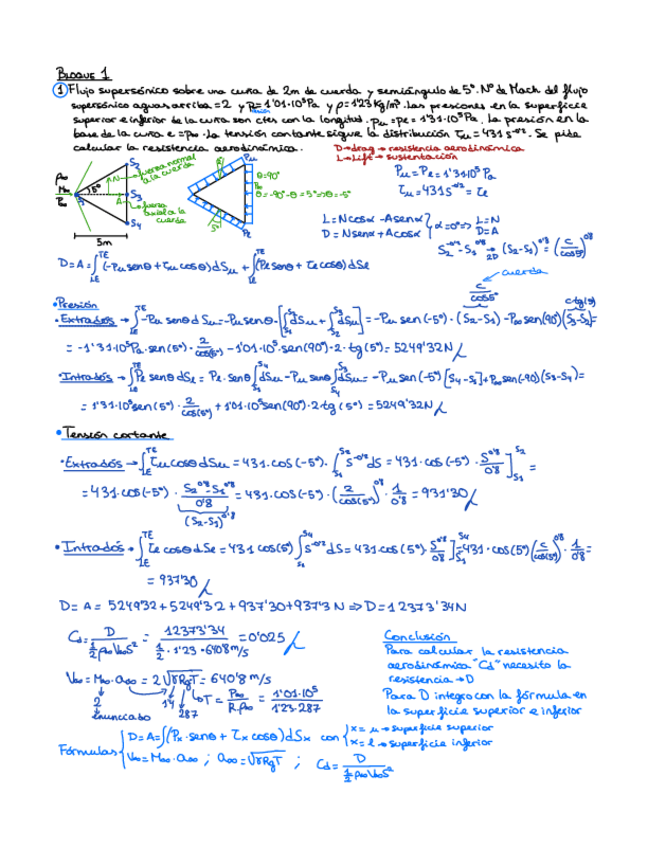 BLOQUE 1
① Flujo supersónico sobre una cuña de 2m de cuerda y semiángulo de 5º. Nº de Mach del flujo
supersónico aguas arriba = 2 y P∞ = 1'01·10⁵ Pa y ρ = 1'23 Kg/m³. Las presiones en la superficie
presión
superior e inferior de la cuña son ctes con la longitud. Pu = Pe = 1'31·10⁵ Pa. La presión en la
base de la cuña e = P∞. La tensión cortante sigue la distribución τu = 431 s^-0'2. Se pide
calcular la resistencia aerodinámica.
D → drag → resistencia aerodinámica
L → Lift → sustentación
fuerza normal a la cuerda
fuerza axial a la cuerda
ρ∞
M∞
P∞
5º
S2
S3
S4
N
A
5m
Pu
Pe
θ=90º
P∞
5º
Pu = Pe = 1'31·10⁵ Pa
τu = 431 s^-0'2 = τe
L = N cosα - A senα
D = N senα + A cosα
α=0º ⇒ L=N
D=A
2D
(S2-S1)^0'8 = (c/cos5º)^0'8
c/cos5º
cuerda
D = A = ∫_LE^TE (-Pu senθ + τu cosθ) dSu + ∫_LE^TE (Pe senθ + τe cosθ) dSe
• Presión
c·tg(5)
• Extradós → ∫_LE^TE -Pu senθ dSu = -Pu senθ·[∫_S1^S2 dSu + ∫_S2^S3 dSu] = -Pu sen(-5º)·(S2-S1) - P∞ sen(90)(S3-S2) =
= -1'31·10⁵ Pa·sen(5º)·2/cos(5º) - 1'01·10⁵·sen(90º)·2·tg(5º) = 5249'32 N
• Intradós → ∫_LE^TE Pe senθ dSe = Pe·senθ ∫_S1^S4 dSu - Pu senθ ∫_S4^S3 dSu = -Pu sen(-5º)[S4-S1] + P∞ sen(-90)(S3-S4) =
= 1'31·10⁵ sen(5º)·2/cos(5º) + 1'01·10⁵ sen(90º)·2·tg(5º) = 5249'32 N
• Tensión cortante
• Extradós → ∫_LE^TE τu cosθ dSu = 431·cos(-5º)·∫_S1^S2 s^-0'2 ds = 431·cos(-5º)·S^0'8/0'8 ]_S1^S2 =
= 431·cos(-5º)·(S2^0'8 - S1^0'8)/0'8 = 431·cos(-5º)·(2/cos(5º))^0'8·1/0'8 = 931'30
(S2-S1)^0'8
• Intradós → ∫_LE^TE τe cosθ dSe = 431 cos(5º) ∫_S1^S4 s^-0'2 dS = 431 cos(5º)·S^0'8/0'8 ]_S1^S4 = 431·cos(5º)(c/cos(5º))^0'8·1/0'8 =
= 937'30
D = A = 5249'32 + 5249'32 + 937'30 + 937'3 N ⇒ D = 12373'34 N
Cd = D/(½ρ∞V∞S²) = 12373'34/(½·1'23·640'8 m/s) = 0'025
V∞ = M∞·a∞ = 2√(γRgT) = 640'8 m/s
2
enunciado
1'4
287
T = P∞/(R ρ∞) = 1'01·10⁵/(1'23·287)
Conclusión
Para calcular la resistencia
aerodinámica "Cd" necesito la
resistencia → D
Para D integro con la fórmula en
la superficie superior e inferior
Fórmulas
D = A = ∫(Px·senθ + τx cosθ) dSx con
x = u → superficie superior
x = l → superficie inferior
V∞ = M∞·a∞ ; a∞ = √(γRgT) ; Cd = D/(½ρ∞V∞S²)